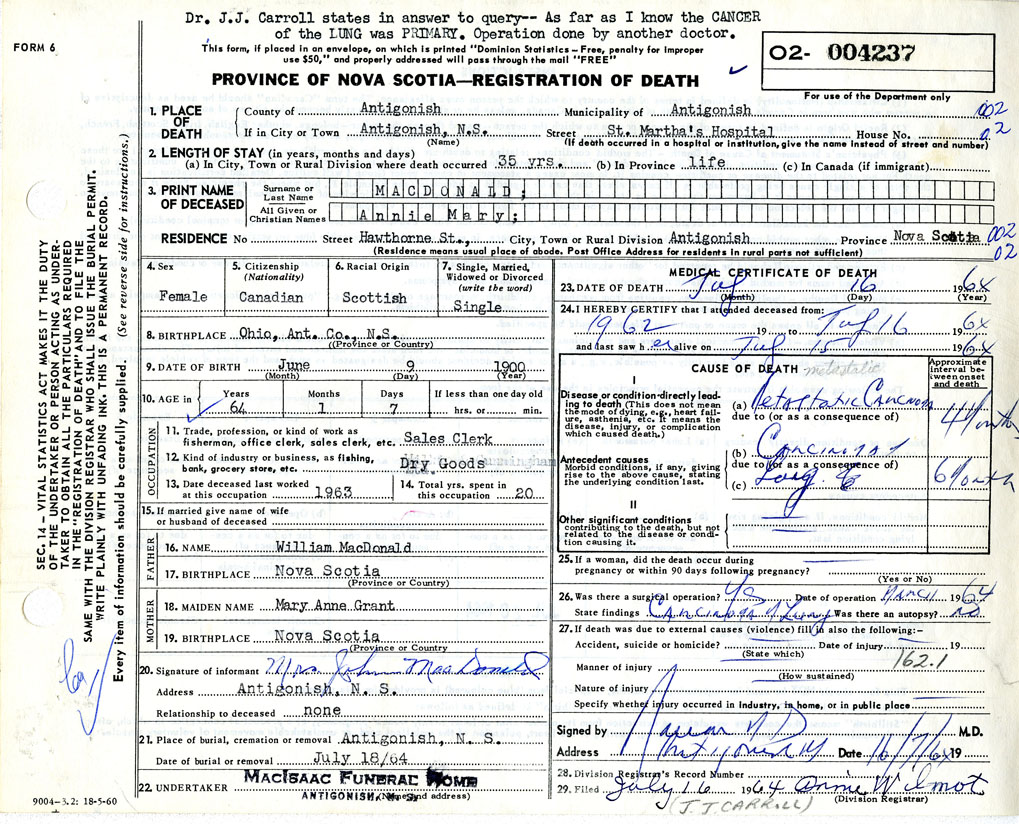 Dr. J.J. Carroll states in answer to query-- As far as I know the CANCER
of the LUNG was PRIMARY. Operation done by another doctor.
FORM 6
This form, if placed in an envelope, on which is printed "Dominion Statistics – Free, penalty for improper
use $50," and properly addressed will pass through the mail "FREE"
PROVINCE OF NOVA SCOTIA—REGISTRATION OF DEATH
02- 004237
For use of the Department only
SEC. 14 – VITAL STATISTICS ACT MAKES IT THE DUTY
OF THE UNDERTAKER OR PERSON ACTING AS UNDER-
TAKER TO OBTAIN ALL THE PARTICULARS REQUIRED
IN THE "REGISTRATION OF DEATH" AND TO FILE THE
SAME WITH THE DIVISION REGISTRAR WHO SHALL ISSUE THE BURIAL PERMIT.
WRITE PLAINLY WITH UNFADING INK. THIS IS A PERMANENT RECORD.
Every item of information should be carefully supplied. (See reverse side for instructions.)
1. PLACE OF DEATH
County of Antigonish Municipality of Antigonish 002
If in City or Town Antigonish, N.S. Street St. Martha's Hospital House No. 02
(Name) (If death occurred in a hospital or institution, give the name instead of street and number)
2. LENGTH OF STAY (in years, months and days)
(a) In City, Town or Rural Division where death occurred 35 yrs. (b) In Province life (c) In Canada (if immigrant)
3. PRINT NAME OF DECEASED
Surname or Last Name MACDONALD;
All Given or Christian Names Annie Mary;
RESIDENCE No Street Hawthorne St., City, Town or Rural Division Antigonish Province Nova Scotia 002
(Residence means usual place of abode. Post Office Address for residents in rural parts not sufficient) 02
4. Sex Female
5. Citizenship (Nationality) Canadian
6. Racial Origin Scottish
7. Single, Married, Widowed or Divorced (write the word) Single
8. BIRTHPLACE Ohio, Ant. Co., N.S.
(Province or Country)
9. DATE OF BIRTH June 9 1900
(Month) (Day) (Year)
10. AGE in Years 64 Months 1 Days 7 If less than one day old hrs. or min.
OCCUPATION
11. Trade, profession, or kind of work as
fisherman, office clerk, sales clerk, etc. Sales Clerk
12. Kind of industry or business, as fishing,
bank, grocery store, etc. Dry Goods
13. Date deceased last worked at this occupation 1963
14. Total yrs. spent in this occupation 20
15. If married give name of wife
or husband of deceased
FATHER
16. NAME William MacDonald
17. BIRTHPLACE Nova Scotia
(Province or Country)
MOTHER
18. MAIDEN NAME Mary Anne Grant
19. BIRTHPLACE Nova Scotia
(Province or Country)
20. Signature of informant Mrs John MacDonald
Address Antigonish, N. S.
Relationship to deceased none
21. Place of burial, cremation or removal Antigonish, N. S.
Date of burial or removal July 18/64
22. UNDERTAKER MacIsaac Funeral Home
ANTIGONISH, N. S. (Name and address)
9004–3.2: 18-5-60
MEDICAL CERTIFICATE OF DEATH
23. DATE OF DEATH July 16 1964
(Month) (Day) (Year)
24. I HEREBY CERTIFY that I attended deceased from:
1962 19 to July 16 1964
and last saw her alive on July 15 1964
CAUSE OF DEATH metastatic
Approximate interval between onset and death
I
Disease or condition directly lead-
ing to death (This does not mean
the mode of dying, e.g., heart fail-
ure, asthenia, etc. It means the
disease, injury, or complication
which caused death.)
(a) Metastatic Carcinoma 4 Months
due to (or as a consequence of)
Antecedent causes
Morbid conditions, if any, giving
rise to the above cause, stating
the underlying condition last.
(b) Carcinoma of
due to (or as a consequence of)
(c) Lung 6 Months
II
Other significant conditions
contributing to the death, but not
related to the disease or condi-
tion causing it.
25. If a woman, did the death occur during
pregnancy or within 90 days following pregnancy?
(Yes or No)
26. Was there a surgical operation? Yes Date of operation March 1964
State findings Carcinoma of Lung Was there an autopsy? no
27. If death was due to external causes (violence) fill in also the following:–
Accident, suicide or homicide? Date of injury 19
(State which) 162.1
Manner of injury
(How sustained)
Nature of injury
Specify whether injury occurred in Industry, in home, or in public place
Signed by M.D.
Address Antigonish Date 16/7/64 19
28. Division Registrar's Record Number
29. Filed July 16 1964 Annie Wilmot
(J.J. CARROLL) (Division Registrar)